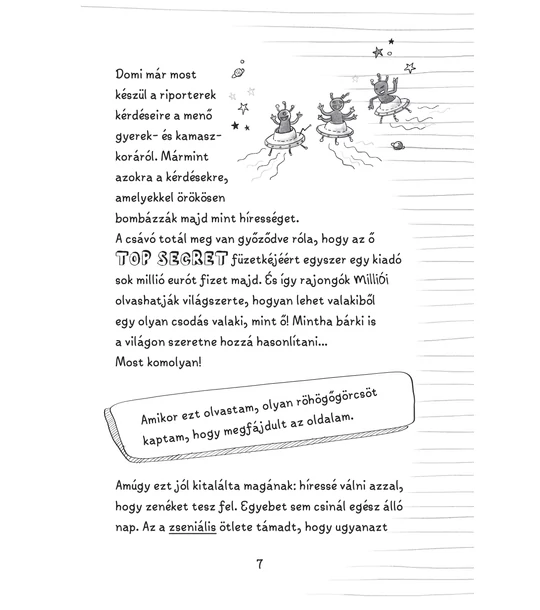 Domi már most
készül a riporterek
kérdéseire a menő
gyerek- és kamasz-
koráról. Mármint
azokra a kérdésekre,
amelyekkel örökösen
bombázzák majd mint hírességet.
A csávó totál meg van győződve róla, hogy az ő
TOP SECRET füzetkéjéért egyszer egy kiadó
sok millió eurót fizet majd. És így rajongók milliói
olvashatják világszerte, hogyan lehet valakiből
egy olyan csodás valaki, mint ő! Mintha bárki is
a világon szeretne hozzá hasonlítani...
Most komolyan!
Amikor ezt olvastam, olyan röhögőgörcsöt
kaptam, hogy megfájdult az oldalam.
Amúgy ezt jól kitalálta magának: híressé válni azzal,
hogy zenéket tesz fel. Egyebet sem csinál egész álló
nap. Az a zseniális ötlete támadt, hogy ugyanazt
7